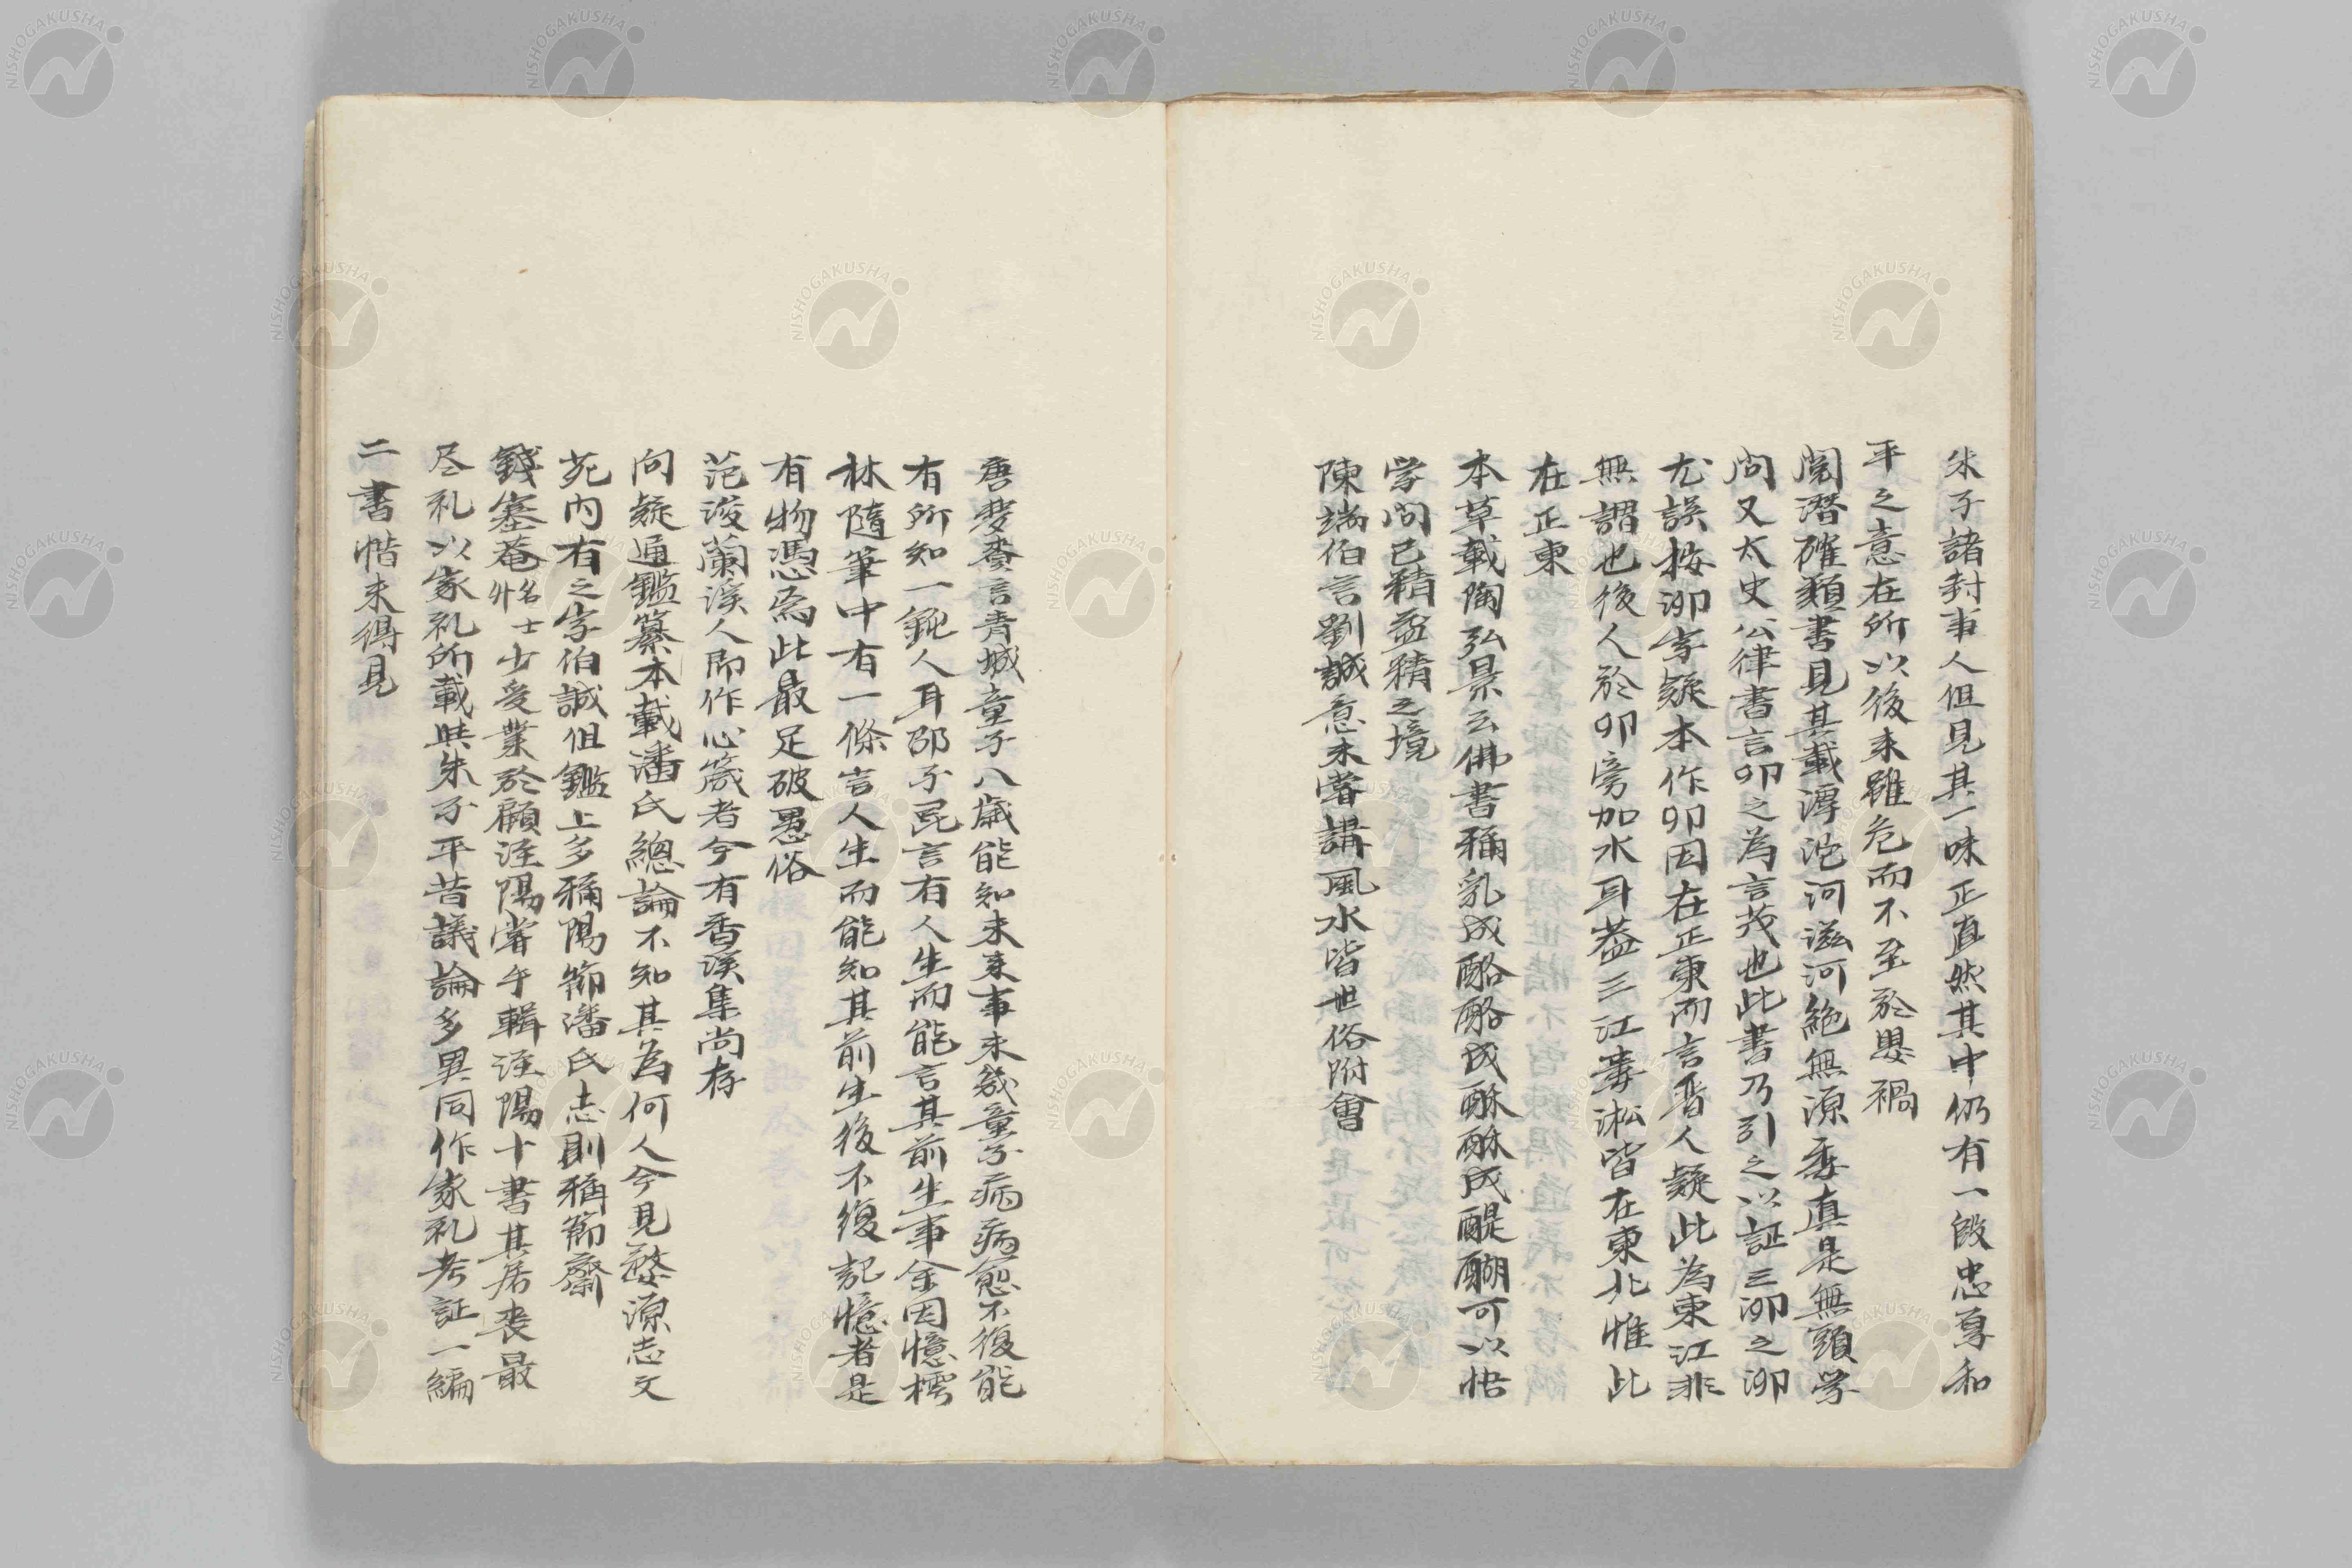 朱子諸封事人但見其一味正直然其中仍有一段忠厚和
平之意在所以後来雖危而不至於嬰禍
閲潜確類書見其載滹沱河滋河絶無源委真是無頭学
問又太史公律書言卯之為言茂也此書乃引之以証三泖之泖
尤誤按泖字疑本作卯因在正東而言晋人疑此為東江非
無謂也後人於卯旁加水耳葢三江婁淞皆在東北惟此
在正東
本草載陶弘景云佛書稱乳成酪酪成酥酥成醍醐可以悟
学問已精益精之境
陳端伯言劉誠意未嘗講風水皆世俗附會
唐夔賡言青城童子八歳能知未来事未幾童子病病愈不復能
有所知一鈍人耳邵子昆言有人生而能言其前生事余因憶樗
林隨筆中有一條言人生而能知其前生後不復記憶者是
有物憑焉此最足破愚俗
范浚蘭溪人即作心箴者今有香溪集尚存
向疑通鑑纂本載潘氏總論不知其為何人今見婺源志文
苑内有之字伯誠但鑑上多稱陽節潘氏志則稱節齋
錢塞菴名士升少受業於顧涇陽嘗手輯涇陽十書其居喪最
尽礼以家礼所載與朱子平昔議論多異同作家礼考証一編
二書惜未得見
NISHOGAKUSHA